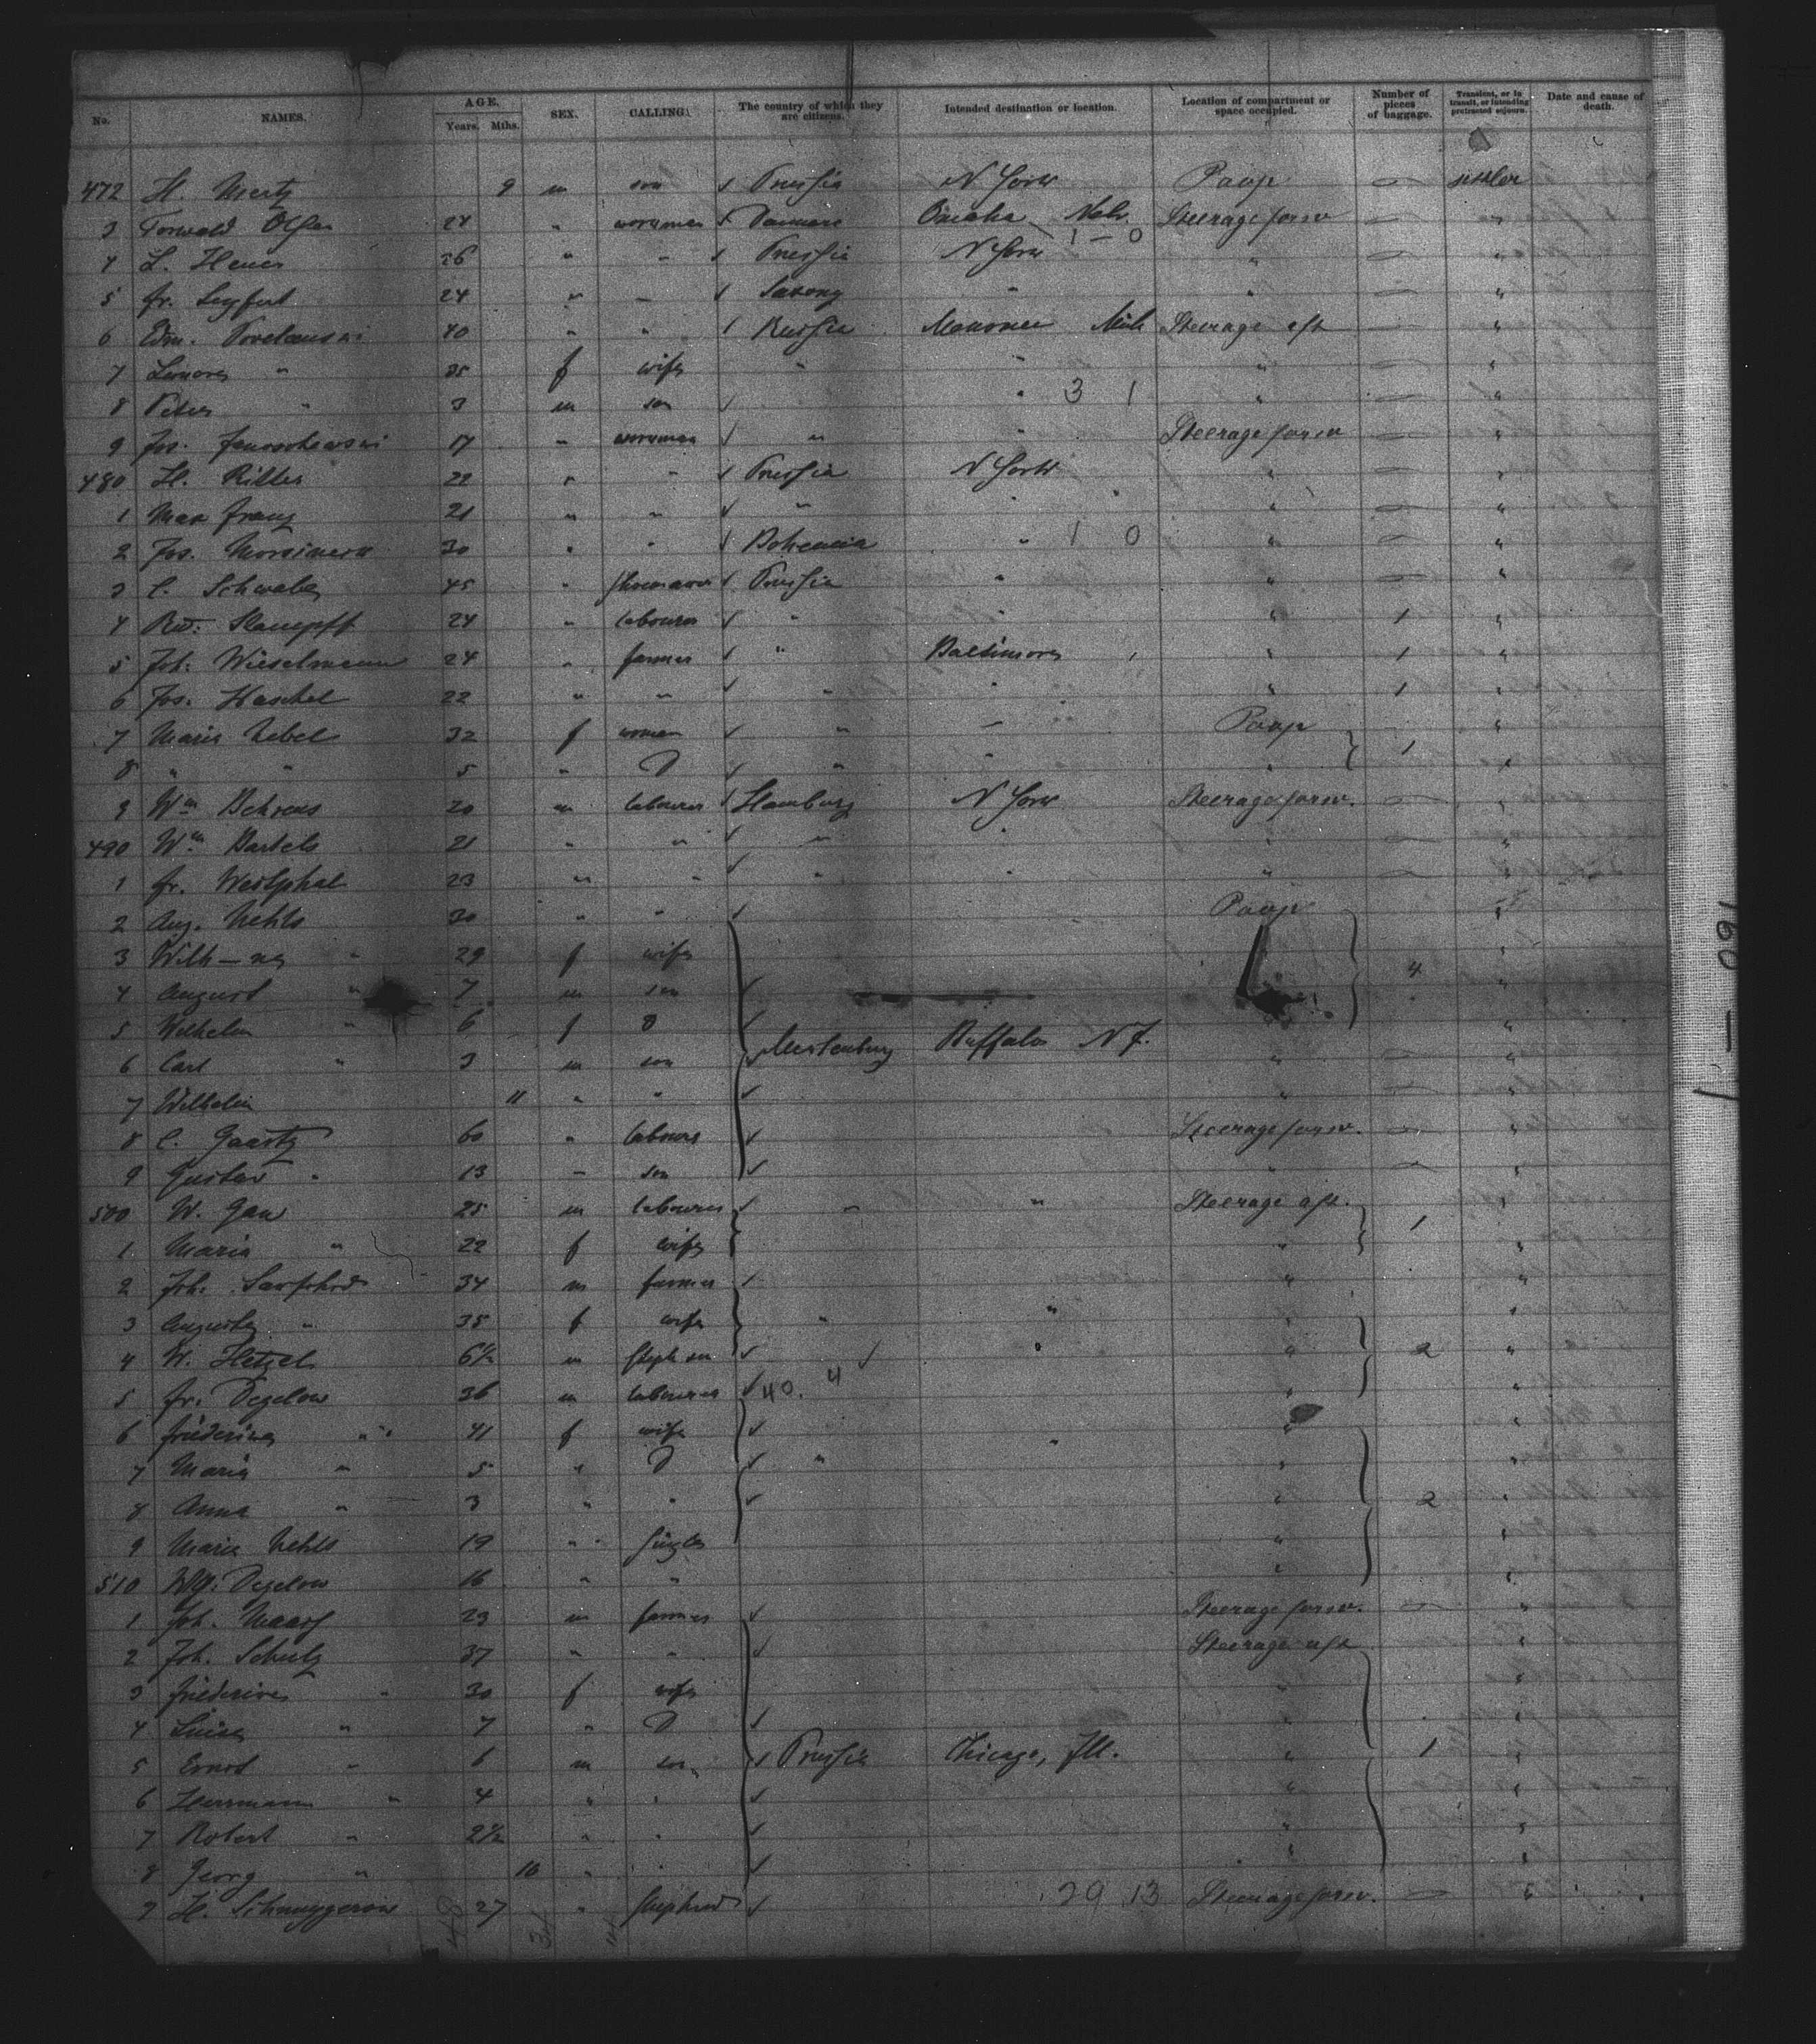 No. NAMES. AGE. Years. Mths. SEX. CALLING. The country of which they are citizens. Intended destination or location. Location of compartment or space occupied. Number of pieces of baggage. Transient, or in transit, or intending protracted sojourn. Date and cause of death.
472 H. Mertz 9 m son ✓ Prussia N York Poop — settler
3 Torwald Olsen 24 " workman ✓ Danmark Omaha Nebr. Steerage forw — "
1 — 0
4 L. Heuer 26 " " ✓ Prussia N York " — "
5 Fr. Seyfert 24 " " ✓ Saxony " " — "
6 Edm. 40 " " ✓ Russia Mich Steerage aft — "
7 Lenore " 35 f wife " " " — "
8 Peter " 3 m son ✓ " 3 1 " — "
9 Jos. 17 " workman ✓ " " Steerage forw — "
480 H. Ritter 22 " " ✓ Prussia N York " — "
1 Max Franz 21 " " ✓ " " " — "
2 Jos. 30 " " ✓ Bohemia " 1 0 " — "
3 C. Schwabe 45 " shoemaker ✓ Prussia " " — "
4 Rud. Stampff 24 " labourer ✓ " " " 1 "
5 Joh. Wieselmann 24 " farmer ✓ " Baltimore " 1 "
6 Jos. Haschel 22 " " ✓ " " " 1 "
7 Marie Uebel 32 f woman ✓ " " Poop 1 "
8 " " 5 " D ✓ " " " "
9 Wm Behrens 20 m labourer ✓ Hamburg N York Steerage forw. — "
490 Wm Bartels 21 " " ✓ " " " — "
1 Fr. Westphal 23 " " ✓ " " " — "
2 Aug. Nehls 30 " " ✓ Poop "
3 Wilh—ne " 29 f wife 4 "
4 August " 7 m son ✓ "
5 Wilhelm " 6 f D ✓ "
6 Carl " 3 m son ✓ Mecklenburg Buffalo N.Y. " — "
7 Wilhelm 11 " " ✓ " — "
8 C. Gaartz 60 " labourer ✓ Steerage forw. — "
9 Gustav " 13 " son ✓ " — "
500 W. Gau 25 m labourer ✓ " " Steerage aft. 1 "
1 Maria " 22 f wife " "
2 Joh. 34 m farmer ✓ " "
3 Auguste " 35 f wife " " " "
4 W. Hetzel 6½ m steph son ✓ " " 2 "
5 Fr. Degelow 36 m labourer ✓ 40. 4 " "
6 Friederike " 41 f wife ✓ " "
7 Maria " 5 " D ✓ " " " "
8 Anna " 3 " " ✓ " 2 "
9 Marie Nehls 19 " single " "
510 Degelow 16 " " " "
1 Joh. Maass 23 m farmer ✓ Steerage forw. — "
2 Joh. Schultz 37 " " ✓ Steerage aft "
3 Friederike " 30 f wife " "
4 Luise " 7 " D ✓ " "
5 Ernst " 6 m son ✓ Prussia Chicago, Ill. " 1 "
6 Herrmann " 4 " " ✓ " "
7 Robert " 2½ " " ✓ " "
8 Georg " 10 " " ✓ " "
9 H. 27 " shepherd ✓ 29 13 Steerage forw. — "
160